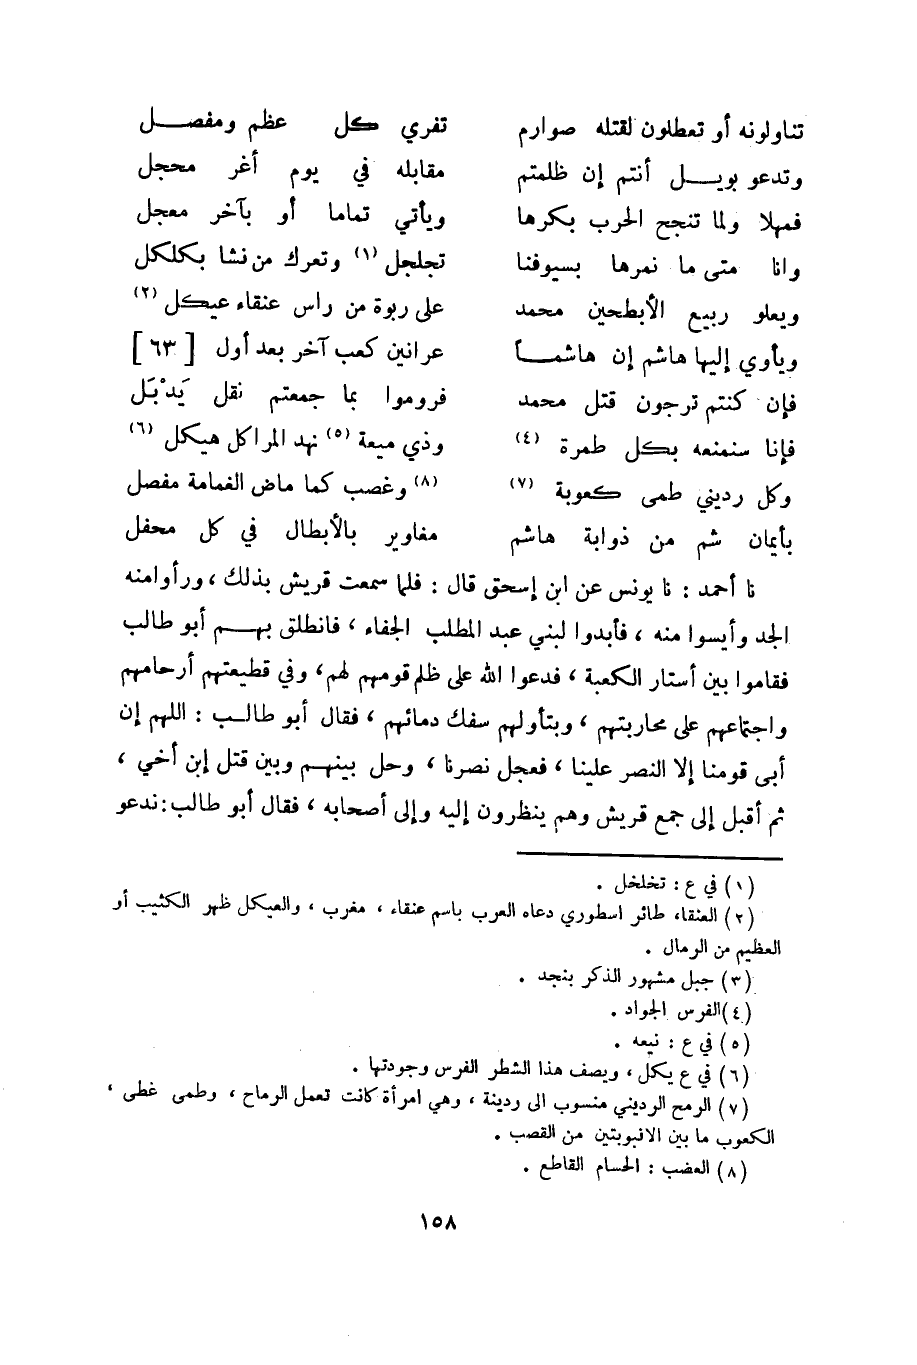 تناولونه أو تعطلون لقتله صوارم تفري كل عظم ومفصل
وتدعو بويل أنتم إن ظلمتم مقابله في يوم أغر محجل
فمهلا ولما تنجح الحرب بكرها ويأتي تماما أو بآخر معجل
وانا متى ما نمرها بسيوفنا تجلجل (١) وتعرك من نشا بكلكل
ويعلو ربيع الأبطحين محمد على ربوة من راس عنقاء عيكل (٢)
ويأوي إليها هاشم إن هاشماً عرانين كعب آخر بعد أول [ ٦٣ ]
فإن كنتم ترجون قتل محمد فروموا بما جمعتم نقل يَذْبَل
فإنا سنمنعه بكل طمرة (٤) وذي ميعة (٥) نهد المراكل هيكل (٦)
وكل رديني طمى كعوبة (٧) (٨) وغصب كما ماض الغمامة مفصل
بأيمان شم من ذوابة هاشم مغاوير بالأبطال في كل محفل
نا أحمد : نا يونس عن ابن إسحق قال : فلما سمعت قريش بذلك ، ورأوا منه
الجد وأيسوا منه ، فأبدوا لبني عبد المطلب الجفاء ، فانطلق بهم أبو طالب
فقاموا بين أستار الكعبة ، فدعوا الله على ظلم قومهم لهم ، وفي قطيعتهم أرحامهم
واجتماعهم على محاربتهم ، وبتأولهم سفك دمائهم ، فقال أبو طالب : اللهم إن
أبى قومنا إلا النصر علينا ، فعجل نصرنا ، وحل بينهم وبين قتل إبن أخي ،
ثم أقبل إلى جمع قريش وهم ينظرون إليه وإلى أصحابه ، فقال أبو طالب : ندعو
(١) في ع : تخلخل .
(٢) العنقاء طائر اسطوري دعاه العرب باسم عنقاء ، مغرب ، والعيكل ظهر الكثيب أو
العظيم من الرمال .
(٣) جبل مشهور الذكر بنجد .
(٤) الفرس الجواد .
(٥) في ع : نيعه .
(٦) في ع يكل ، ويصف هذا الشطر الفرس وجودتها .
(٧) الرمح الرديني منسوب الى ردينة ، وهي امرأة كانت تعمل الرماح ، وطمى غطى ،
الكعوب ما بين الانبوبتين من القصب .
(٨) العضب : الحسام القاطع .
١٥٨